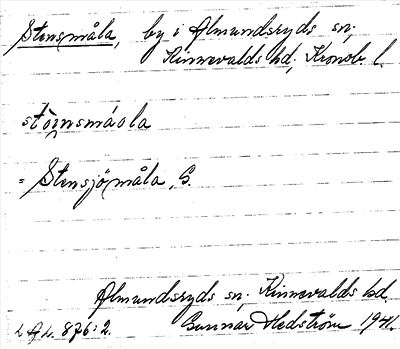 Stensmåla, by i Almundsryds sn,
Kinnevalds hd, Kronob. l.
= Stensjömåla, G.
Almundsryds sn, Kinnevalds hd.
876:2. Gunnar Hedström 1941.